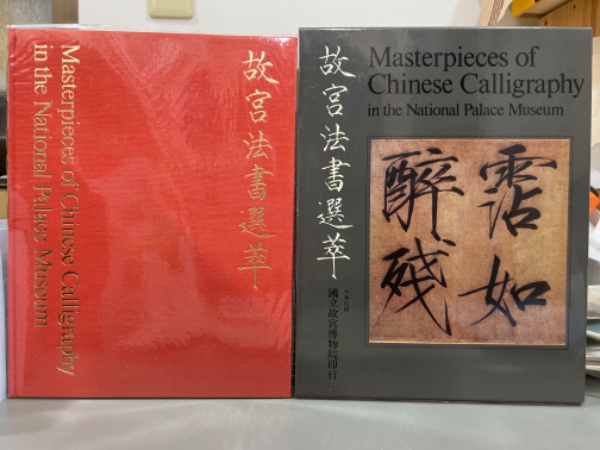 Masterpieces of Chinese Calligraphy
in the National Palace Museum
故宮法書選萃
故宮法書選萃
Masterpieces of
Chinese Calligraphy
in the National Palace Museum
露如
醉殘
中華民國
國立故宮博物院印行